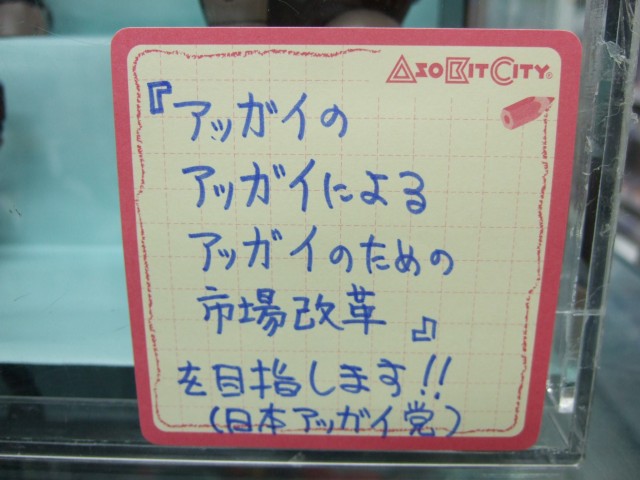 AsoBitCity®
『アッガイの
アッガイによる
アッガイのための
市場改革 』
を目指します!!
(日本アッガイ党)